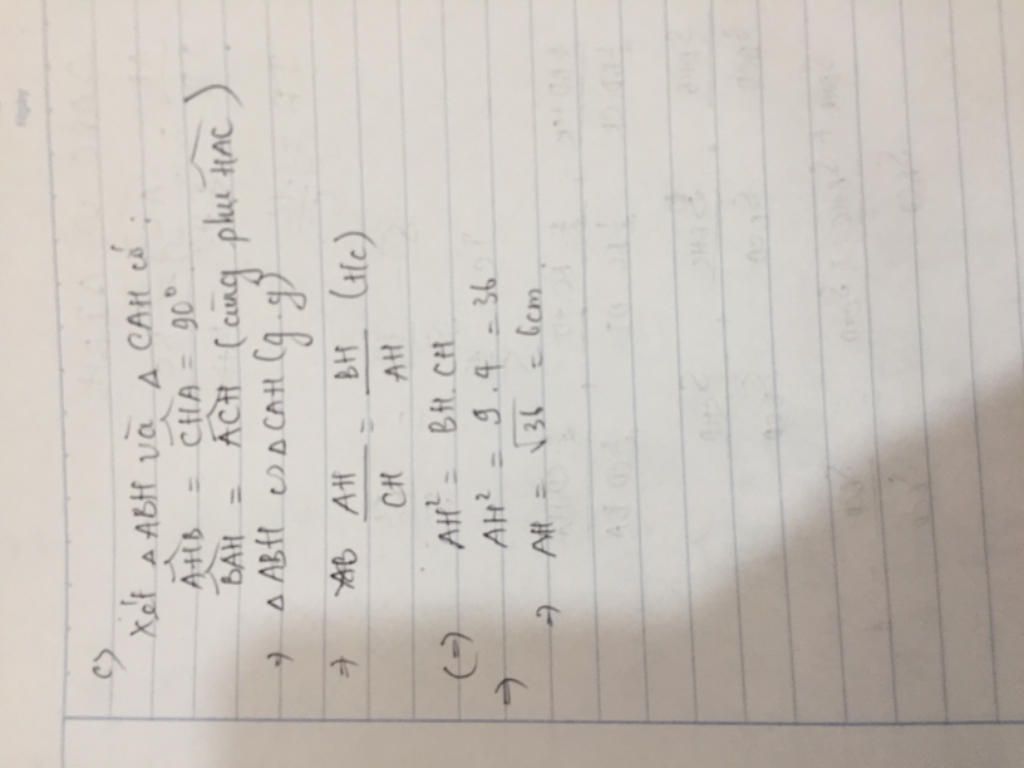 c)
Xét △ABH và △CAH có:
AHB = CHA = 90°
BAH = ACH (cùng phụ HAC)
=> △ABH ∽ △CAH (g.g)
=> AH/CH = BH/AH (HC)
(=) AH² = BH.CH
=> AH² = 9.4 = 36
=> AH = √36 = 6cm